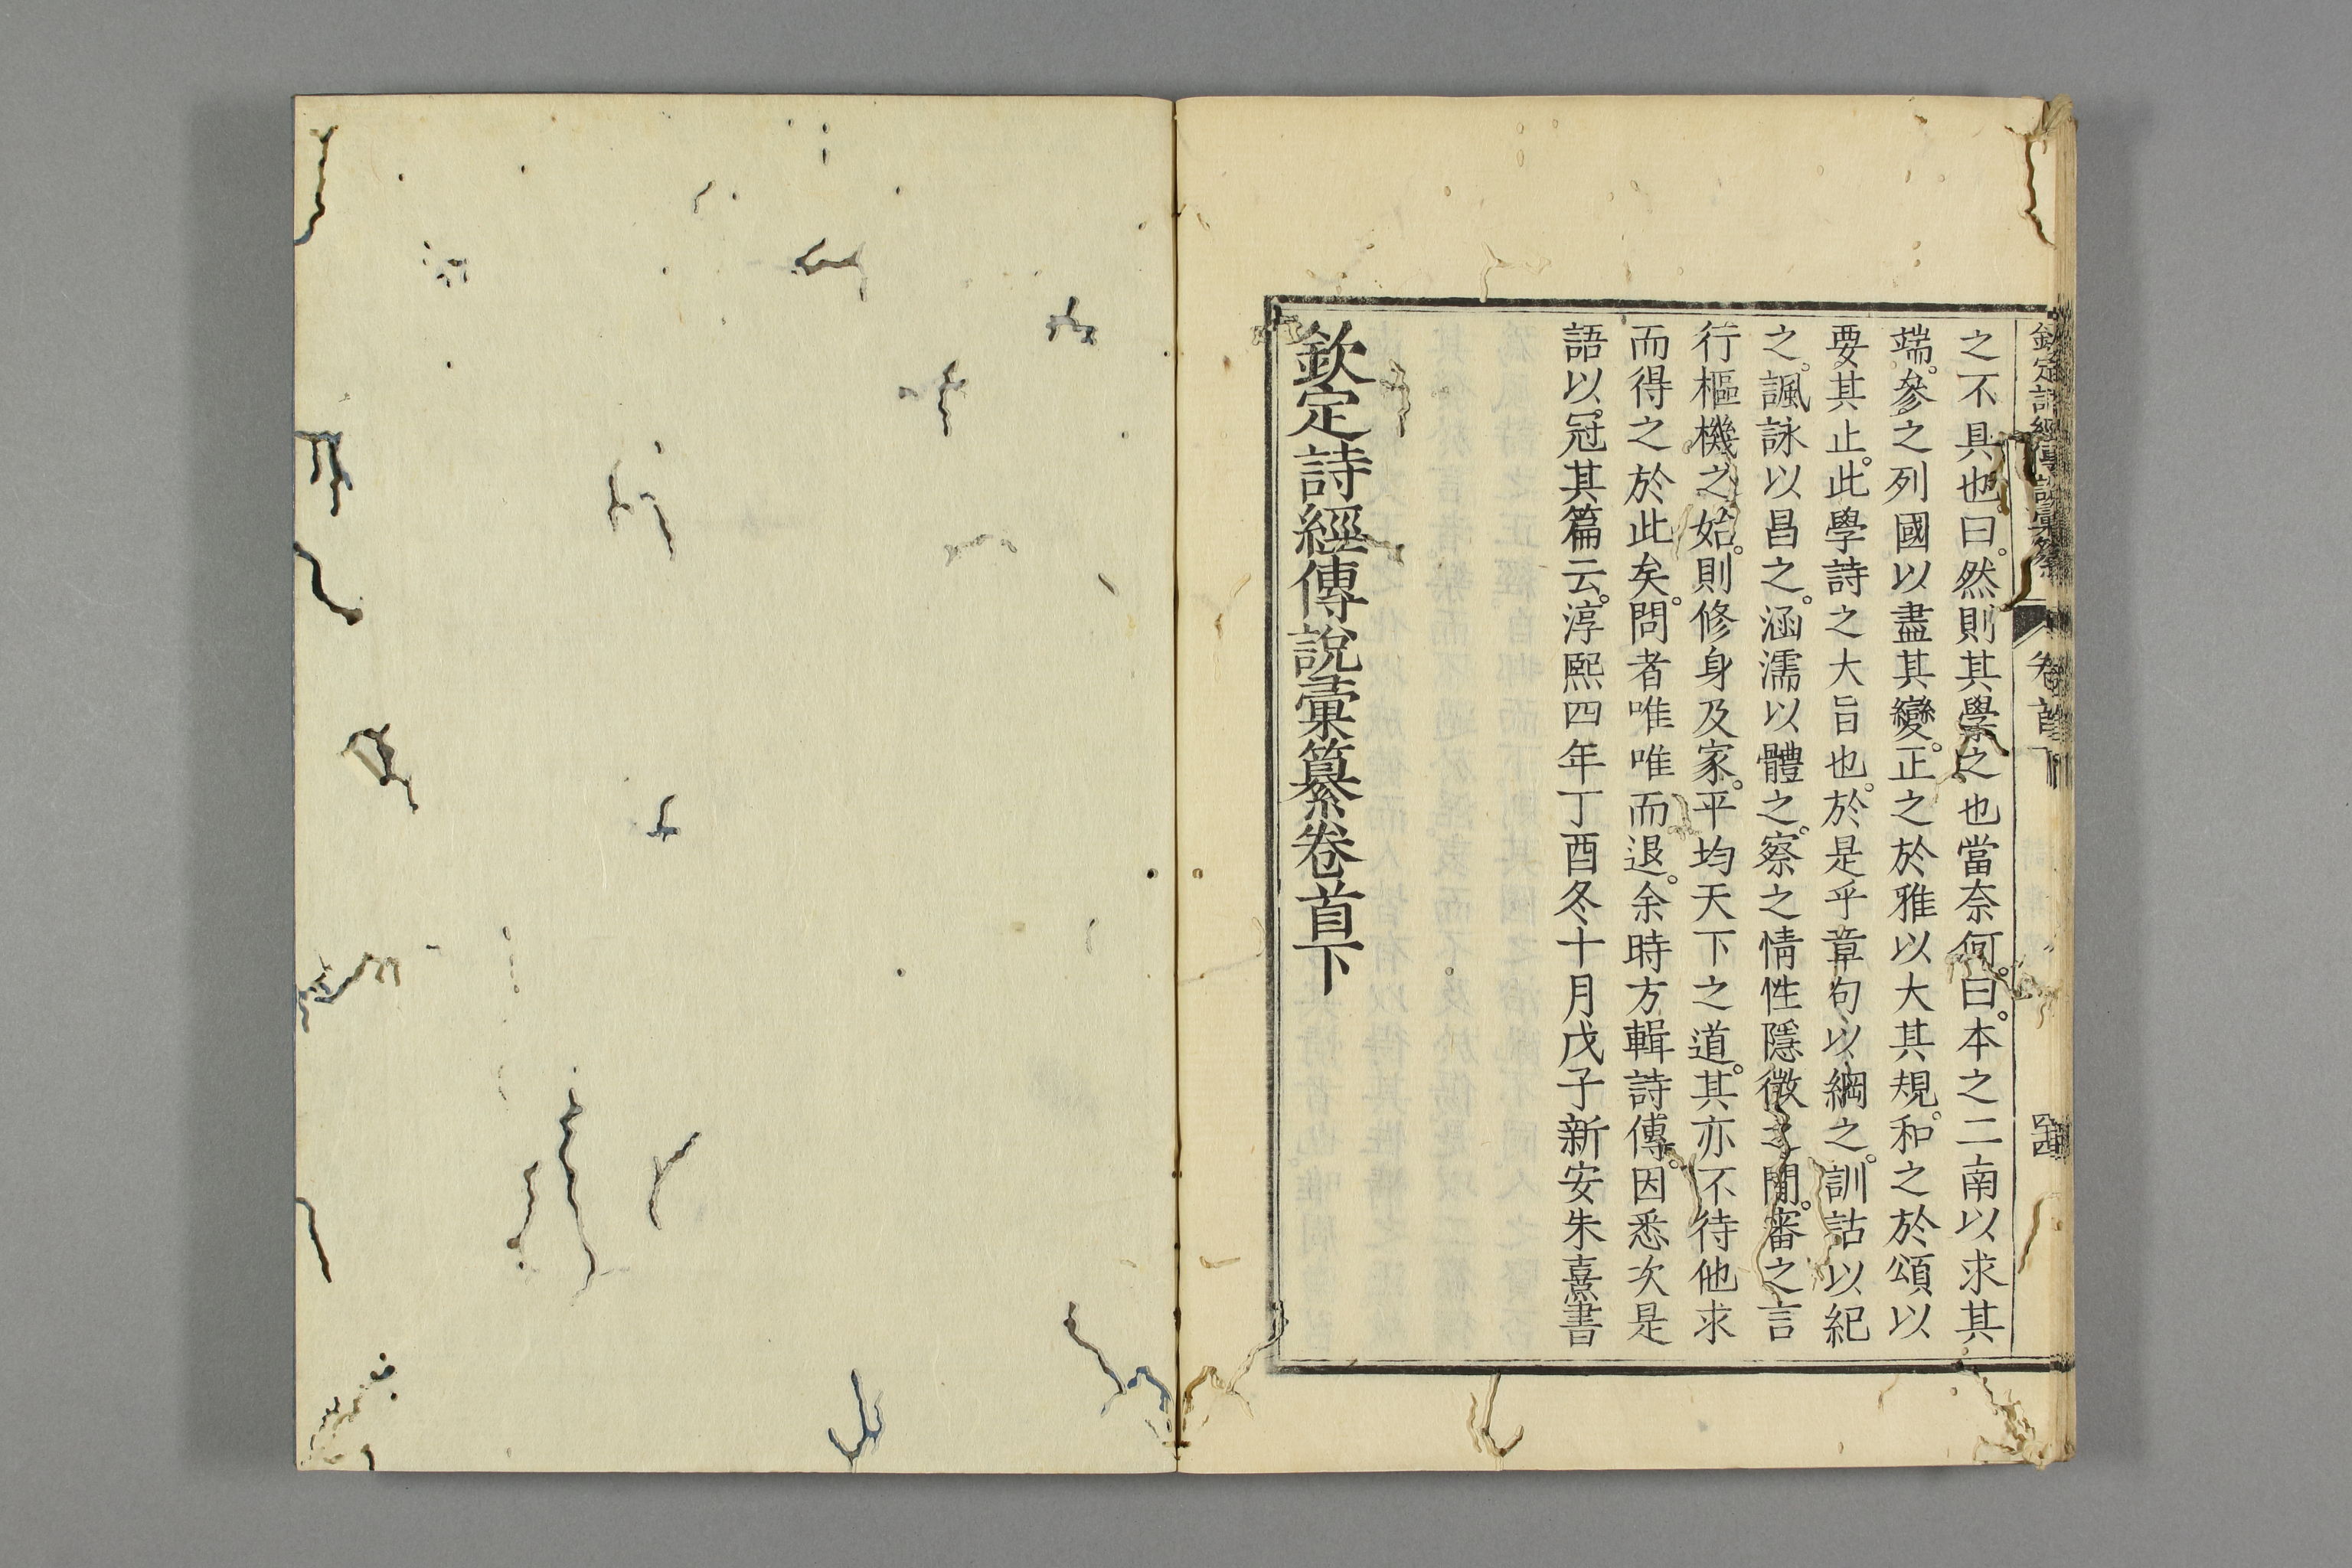 欽定詩經傳說彙纂 卷首下 四
之不具也曰。然則其學之也當奈何。曰。本之二南以求其
端。參之列國以盡其變。正之於雅以大其規。和之於頌以
要其止。此學詩之大旨也。於是乎章句以綱之。訓詁以紀
之。諷詠以昌之。涵濡以體之。察之情性隱微之閒。審之言
行樞機之始。則修身及家。平均天下之道。其亦不待他求
而得之於此矣。問者唯唯而退。余時方輯詩傳。因悉次是
語以冠其篇云。淳熙四年丁酉冬十月戊子新安朱熹書
欽定詩經傳說彙纂卷首下